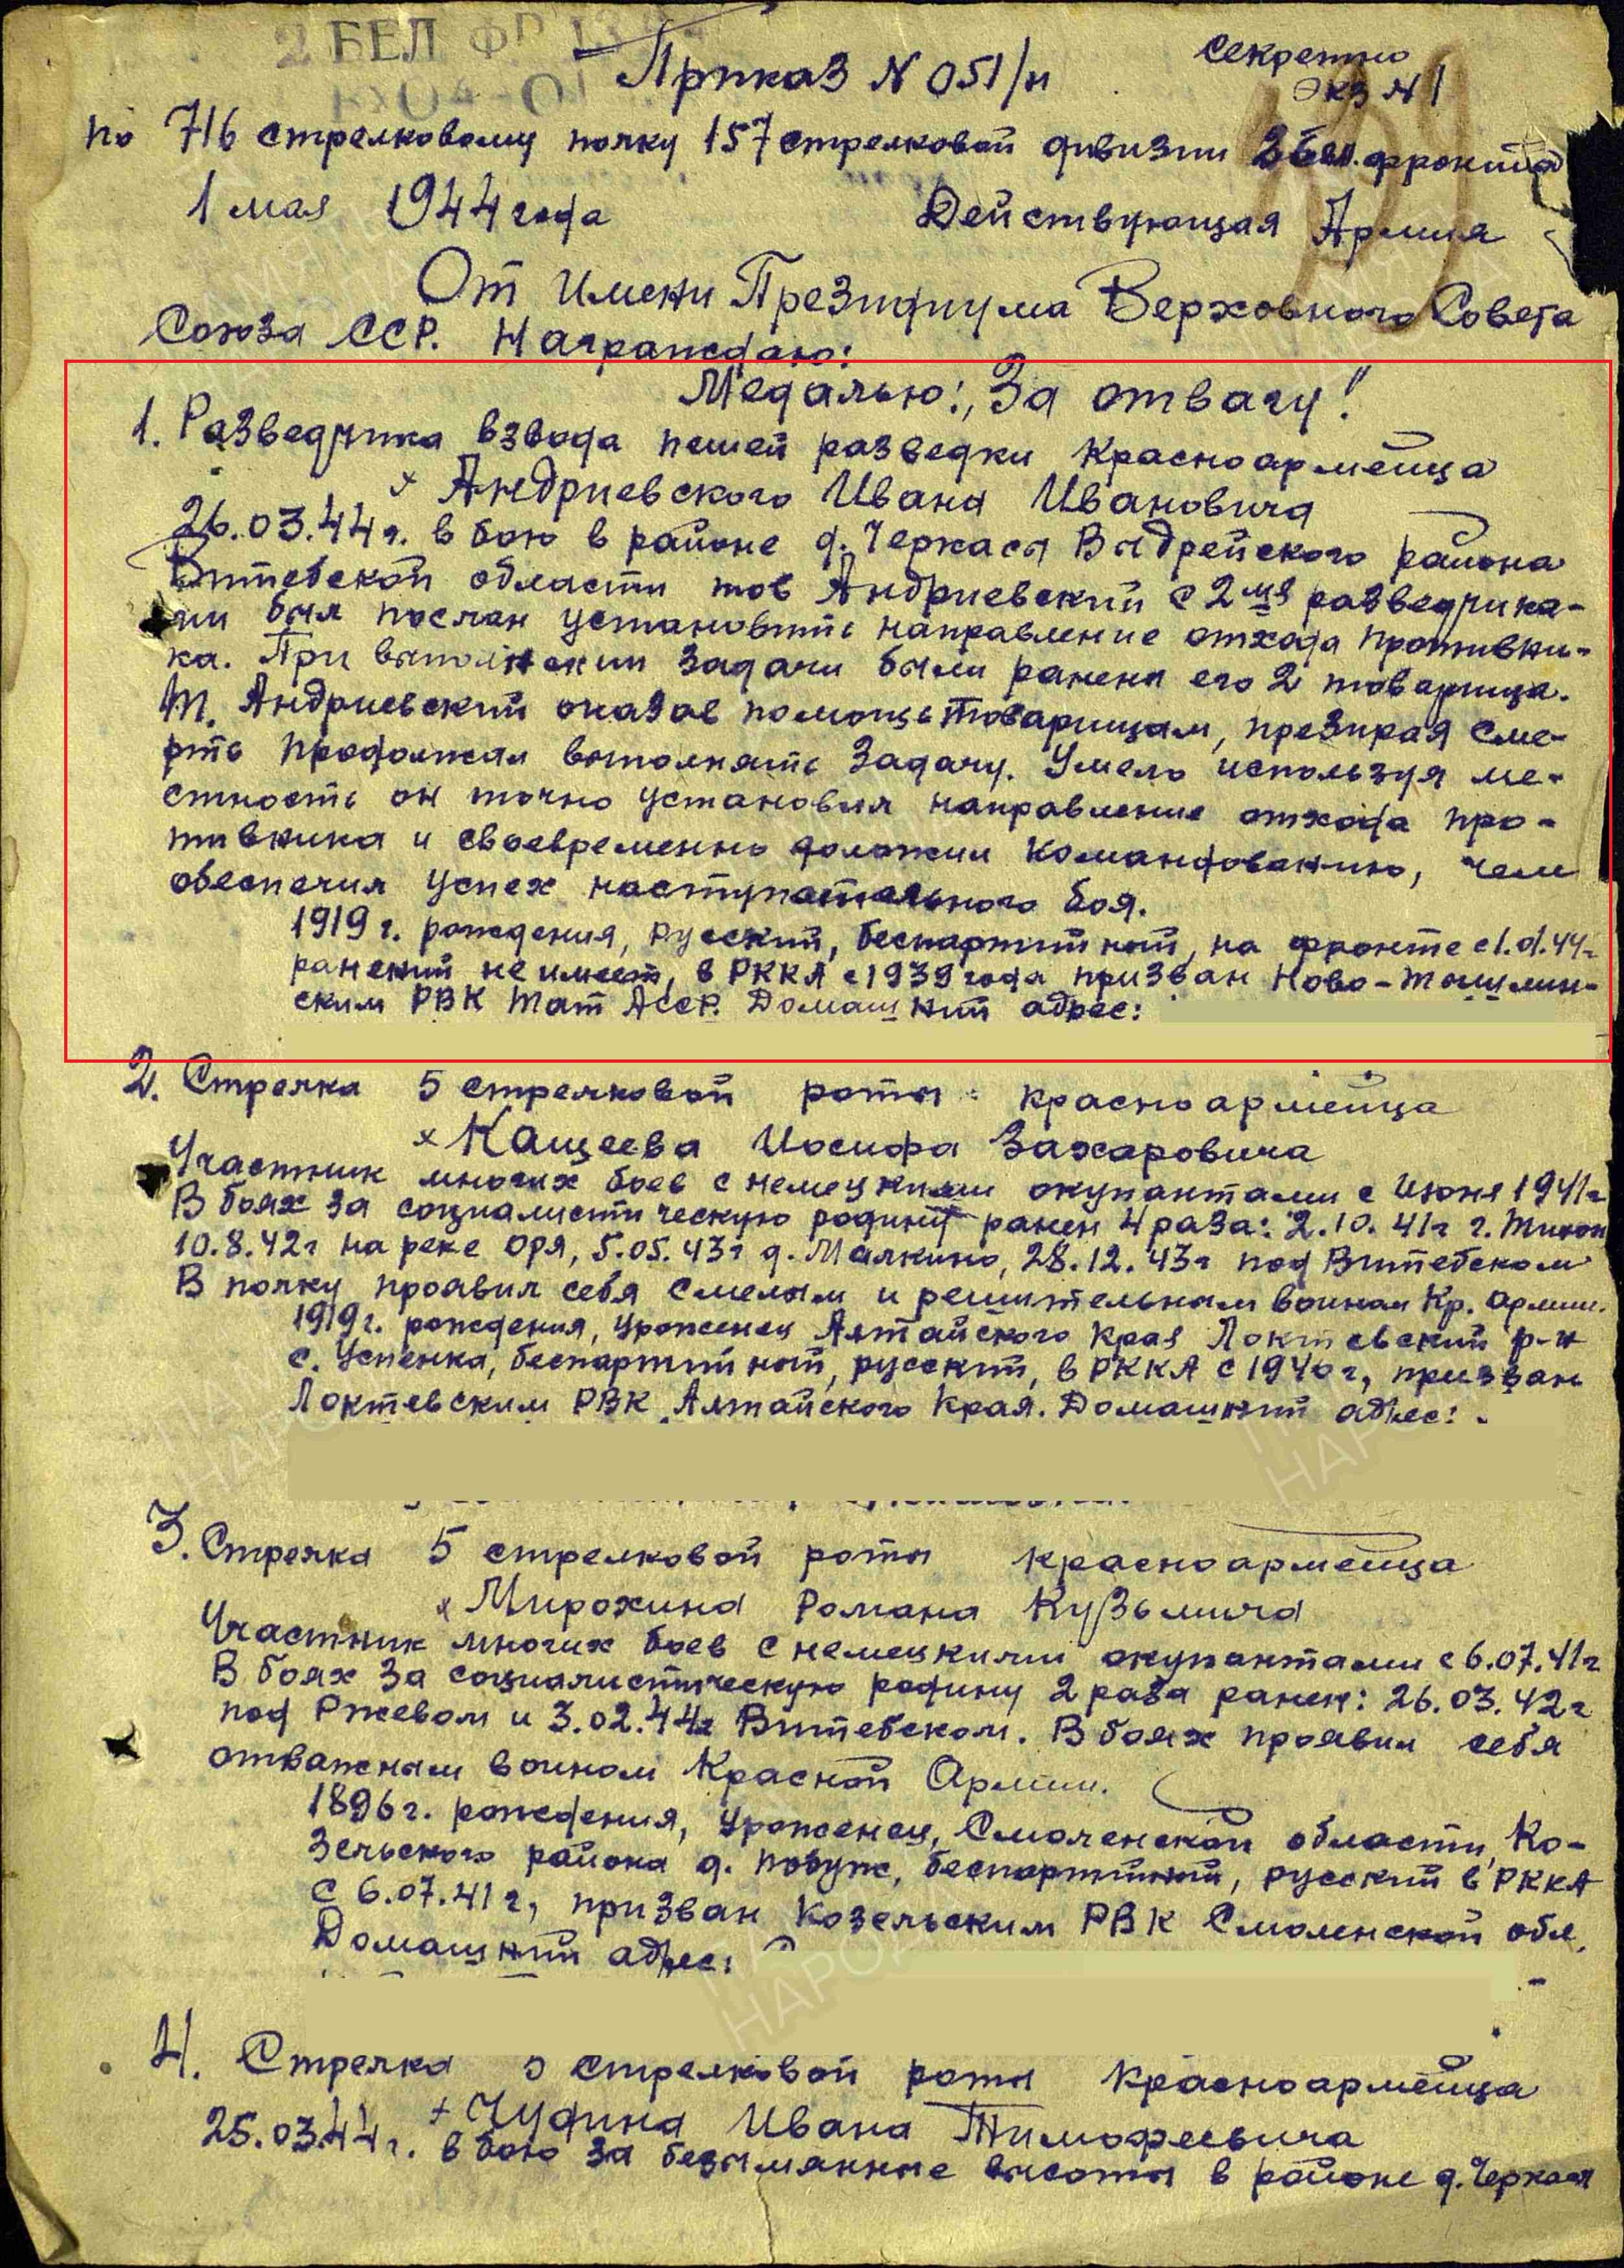 2 БЕЛ ФР
Секретно
Приказ N 051/н
Экз N 1
по 716 стрелковому полку 157 стрелковой дивизии 3 Бел. фронта
1 мая 1944 года Действующая Армия
От имени Президиума Верховного Совета
Союза ССР. Награждаю:
Медалью: „За отвагу!"
1. Разведчика взвода пешей разведки красноармейца
х Андриевского Ивана Ивановича
26.03.44 г. в бою в районе д. Черкасы Выдрейского района
Витебской области тов Андриевский с 2мя разведчика-
ми был послан установить направление отхода противни-
ка. При выполнении задачи были ранены его 2 товарища.
Т. Андриевский оказав помощь товарищам, презирая сме-
рть продолжал выполнять задачу. Умело используя ме-
стность он точно установил направление отхода про-
тивника и своевременно доложил командованию, чем
обеспечил успех наступательного боя.
1919 г. рождения, русский, беспартийный, на фронте с 1.01.44г
ранений не имеет, в РККА с 1939 года призван Ново-Тошмин-
ским РВК Тат АССР. Домашний адрес:
2. Стрелка 5 стрелковой роты красноармейца
х Кащеева Иосифа Захаровича
Участник многих боев с немецкими окупантами с Июня 1941г
В боях за социалистическую родину ранен 4 раза: 2.10.41г г.
10.8.42г на реке Оря, 5.05.43г д. Малкино, 28.12.43г под Витебском
В полку проявил себя смелым и решительным воином Кр. армии.
1919г. рождения, уроженец Алтайского края Локтевский р-н
с. Успенка, беспартийный, русский, в РККА с 1940г, призван
Локтевским РВК Алтайского Края. Домашний адрес:
3. Стрелка 5 стрелковой роты красноармейца
х Мирохина Романа Кузьмича
Участник многих боев с немецкими окупантами с 6.07.41г
В боях за социалистическую родину 2 раза ранен: 26.03.42г
под Ржевом и 3.02.44г Витебском. В боях проявил себя
отважным воином Красной Армии.
1896г. рождения, уроженец, Смоленской области, Ко-
зельского района д. Побуж, беспартийный, русский в РККА
с 6.07.41г, призван Козельским РВК Смоленской обл.
Домашний адрес:
4. Стрелка 5 стрелковой роты красноармейца
+ Чудина Ивана Тимофеевича
25.03.44г. в бою за безымянные высоты в районе д. Черкасы